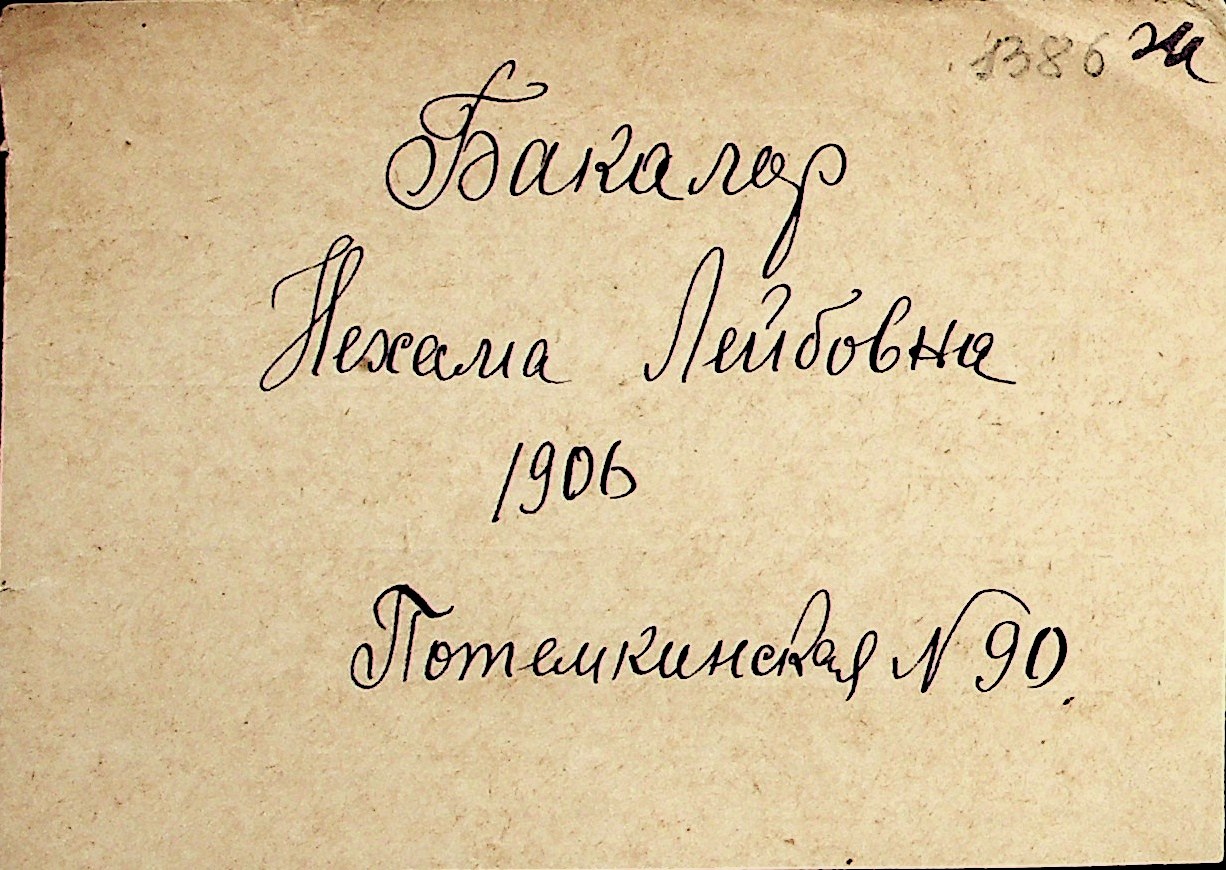 1386 ж
Бакаляр
Нехама Лейбовна
1906
Потемкинская N 90.